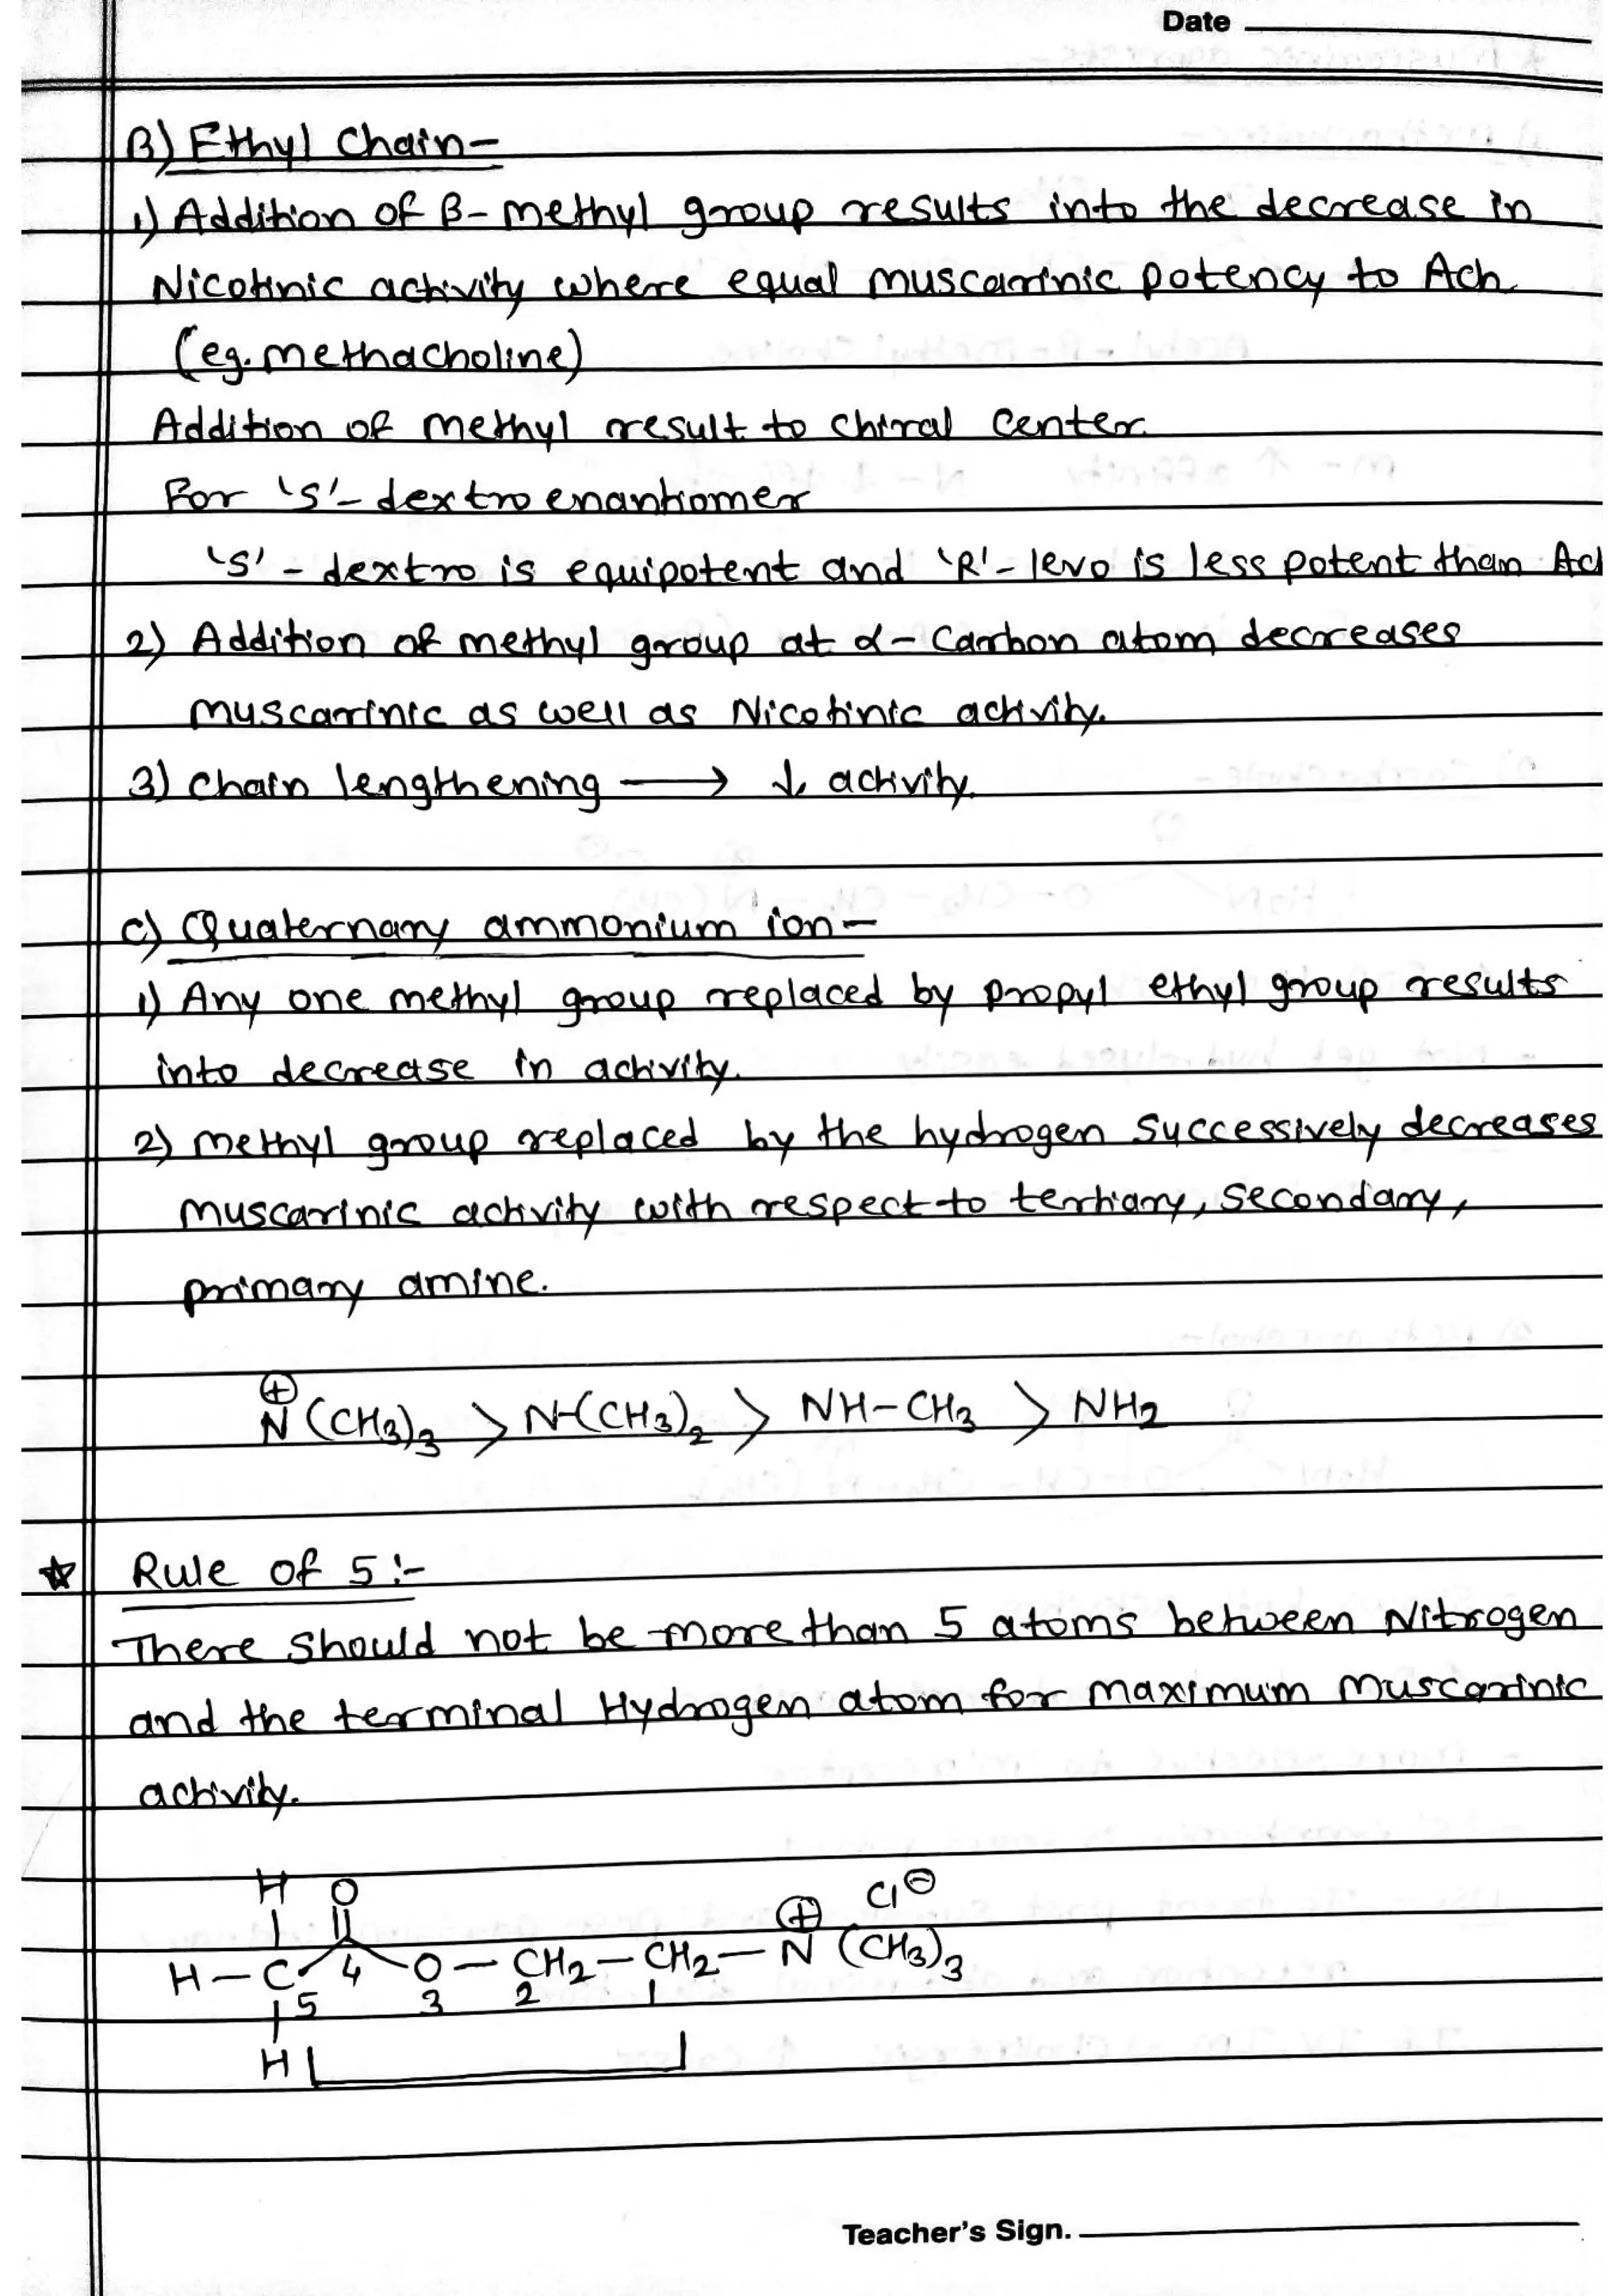 Date
B) Ethyl Chain-
1) Addition of β-methyl group results into the decrease in
Nicotinic activity where equal muscarinic potency to Ach.
(eg. methacholine)
Addition of methyl result to chiral center.
For 'S'- dextro enantiomer
'S' - dextro is equipotent and 'R'- levo is less potent than Ach
2) Addition of methyl group at α- Carbon atom decreases
muscarinic as well as Nicotinic activity.
3) chain lengthening → ↓ activity.
C) Quaternary ammonium ion-
1) Any one methyl group replaced by propyl ethyl group results
into decrease in activity.
2) methyl group replaced by the hydrogen successively decreases
muscarinic activity with respect to tertiary, secondary,
primary amine.
⊕
N (CH3)3 > N-(CH3)2 > NH-CH3 > NH2
☆ Rule of 5:-
There should not be more than 5 atoms between Nitrogen
and the terminal Hydrogen atom for maximum muscarinic
activity.
H O ⊕ Cl⊖
H-C 4 O-CH2-CH2-N (CH3)3
5 3 2 1
H
Teacher's Sign.